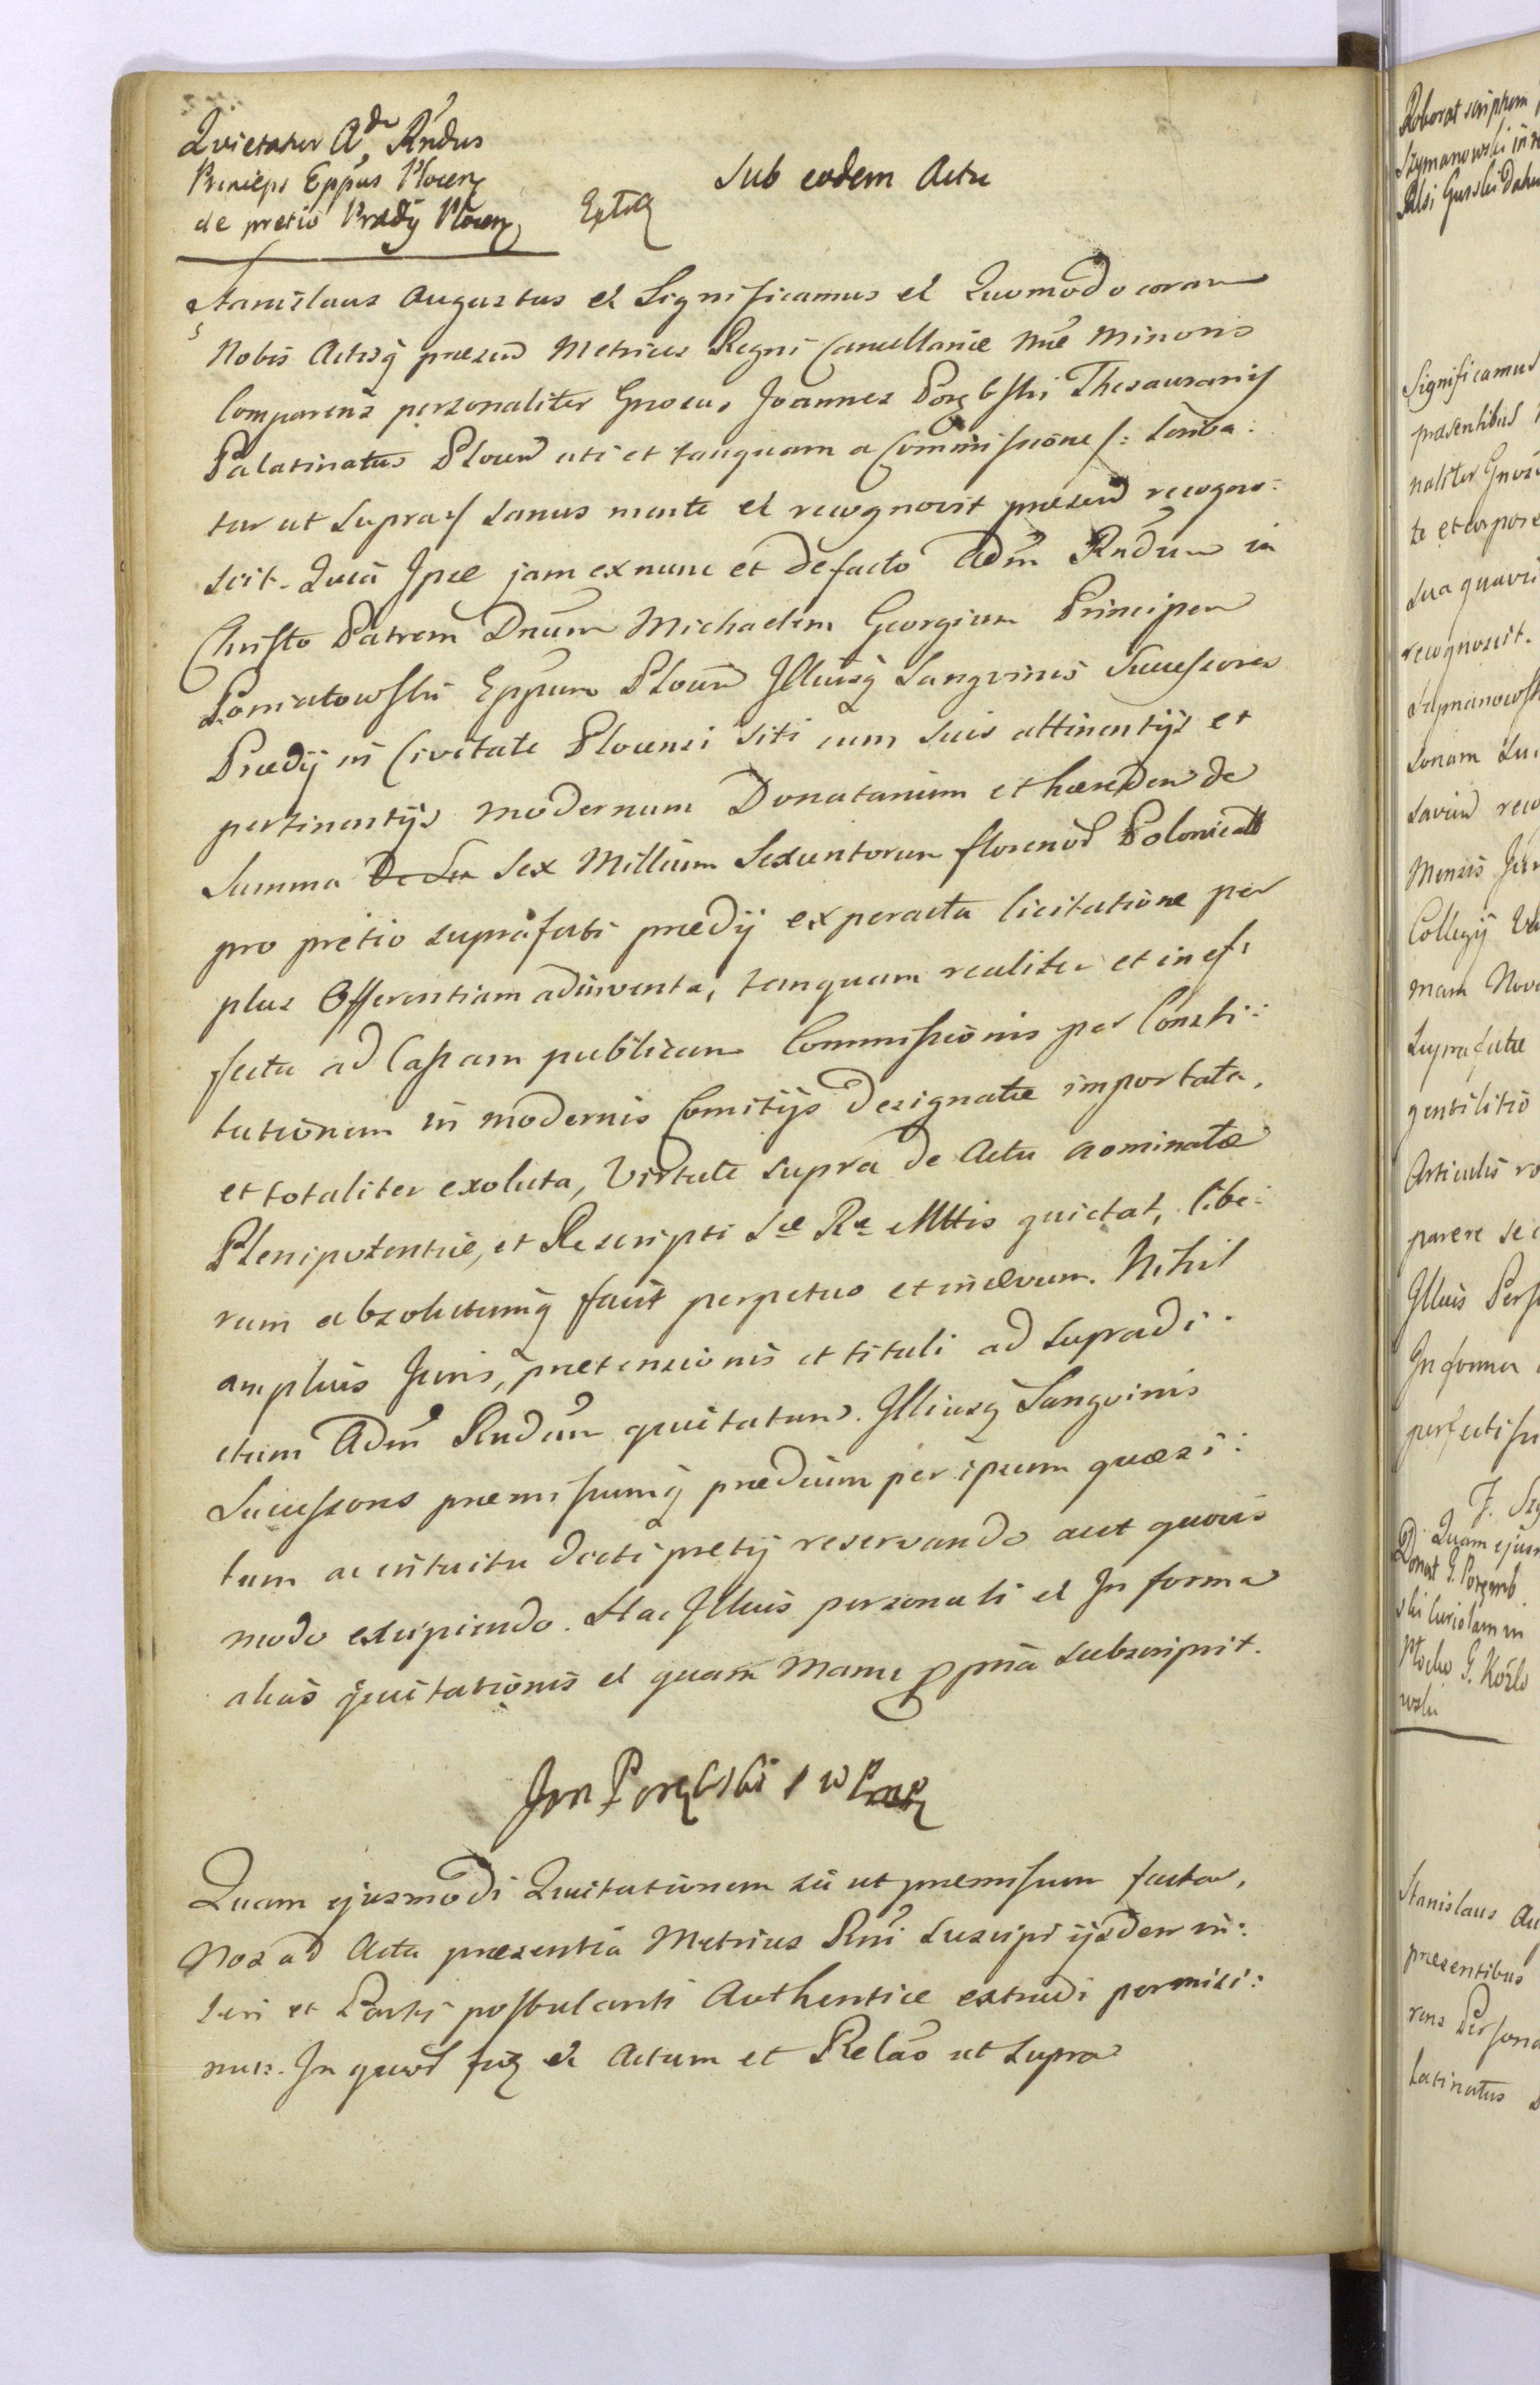 Quietatur Adr Rndus
Princeps Eppus Plocen
de pretio Prædij Plocen
Sub eodem Actu
Stanislaus Augustus et Significamus et Quomodo coram
Nobis Actisq præsend Metrices Regni Cancellariæ Mne Minoris
Comparens personaliter Gnosus Joannes Porębski Thesaurarij
Palatinatus Plocen uti et tanquam a Commissione /: Scriba:
tur ut supra :/ sanus mente et recognovit præsend recogno:
scit. Quia Ipse jam ex nunc et de facto Adm Rndum in
Christo Patrem Dnum Michaelem Georgium Principem
Poniatowski Eppum Plocen Illiusq Sangvinis Successores
Prædij in Civitate Plocensi siti cum suis attinentijs et
pertinentijs modernum Donatarium et hæredem de
Summa De Su Sex Millium Sexcentorum florenor Polonical
pro pretio suprafati prædij ex peracta licitatione per
plus Offerentiam adinventa, tanquam realiter et in ef:
fectu ad Cassam publicam Commissionis per Consti:
tutionem in modernis Comitijs designatæ importata,
et totaliter exoluta, Virtute supra de Actu nominatæ
Plenipotentiæ, et Rescripti Sæ Ræ Mttis quietat, libe:
rum absolutumq facit perpetuo et in ævum. Nihil
amplius Juris, prætensionis et tituli ad supradi:
ctum Adm Rndum quietatum. Illiusq Sangvinis
Successores præmissumq prædium per ipsum quæsi:
tum ac intuitu dicti pretij reservando aut quovis
modo excipiendo. Hac Illius personali et In forma
alias quietationis et quam Manu ppria subscripsit.
Jan Porębski
Quam ejusmodi Quietationem sic ut præmissum factam,
Nos ad Acta præsentia Metrices Rni suscipi ijsdem in:
seri et Parti postulanti Authentice extradi permisi:
mus. In quor fid et Actum et Relao ut supra
Roborat scriptum
Szymanowski in re
Significamus
præsentibus
naliter Gnos
te et corpore
sua quavis
recognoscit.
Szymanowsk
sonam su
Mensis Jun
Collegij Va
mam Nov
Suprafatæ
gentilitio
Articulis ro
parere se
Illius Pers
In forma
perfectissi
J. Szy
Quam ejus
Donat G. Poremb
ski Curiolam in
Plocko G. Kozlo
wski
Stanislaus Au
præsentibus
rens Persona
latinatus